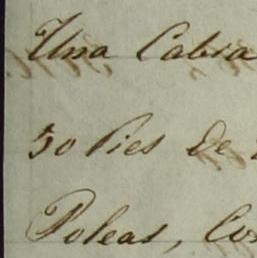 Una Cabra
50 Pies de
Poleas,